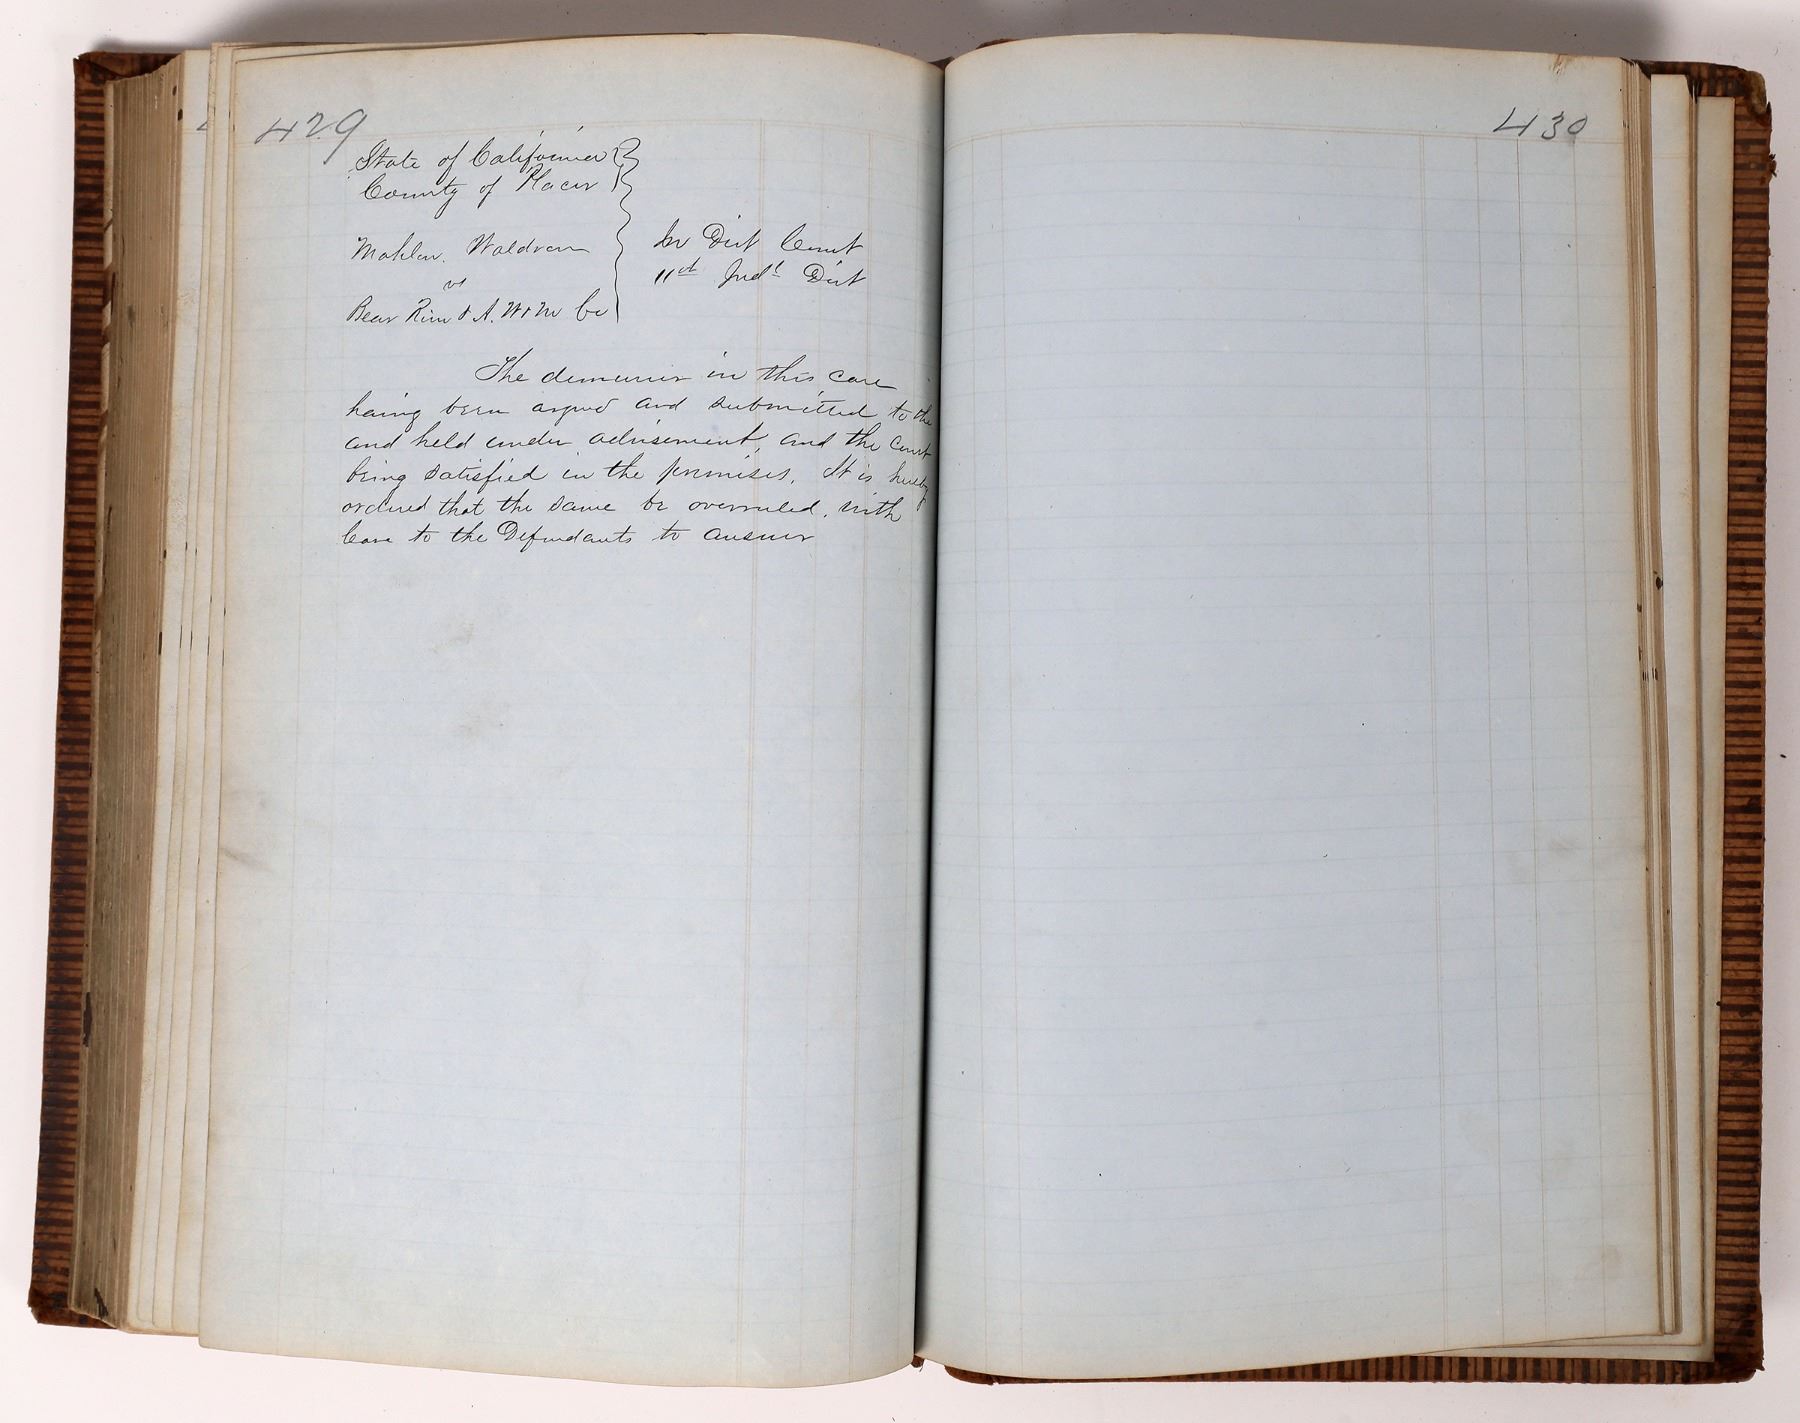 429
State of California
County of Placer
Mahlon Waldron
vs
Bear River & A. W & M Co
In Dist Court
11th Judl Dist
The demurrer in this case
having been argued and submitted to the
and held under advisement, and the court
being satisfied in the premises. It is hereby
ordered that the same be overruled, with
leave to the Defendants to answer
430